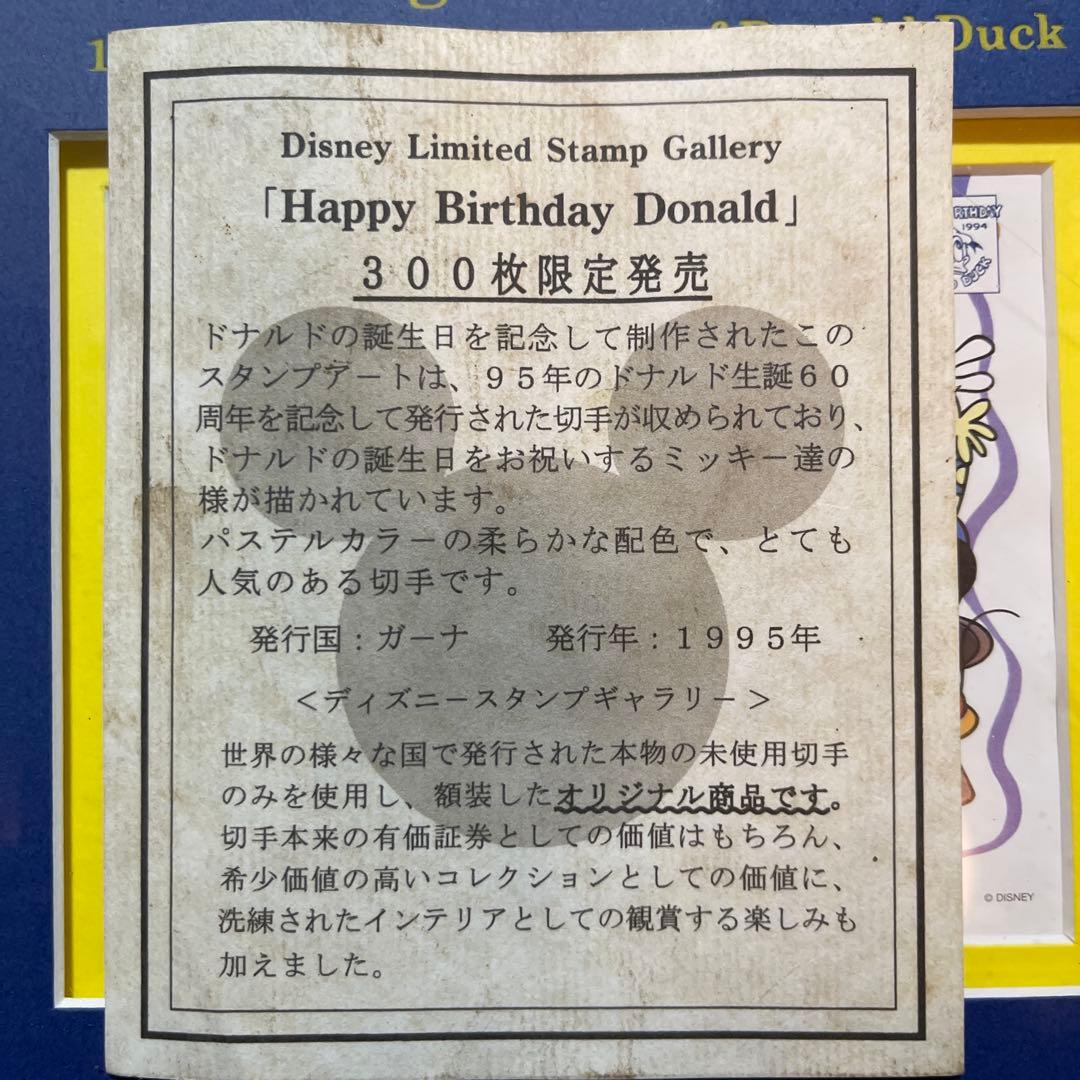 Duck
Disney Limited Stamp Gallery
「Happy Birthday Donald」
３００枚限定発売
ドナルドの誕生日を記念して制作されたこの
スタンプアートは、９５年のドナルド生誕６０
周年を記念して発行された切手が収められており、
ドナルドの誕生日をお祝いするミッキー達の
様が描かれています。
パステルカラーの柔らかな配色で、とても
人気のある切手です。
発行国：ガーナ　発行年：１９９５年
＜ディズニースタンプギャラリー＞
世界の様々な国で発行された本物の未使用切手
のみを使用し、額装したオリジナル商品です。
切手本来の有価証券としての価値はもちろん、
希少価値の高いコレクションとしての価値に、
洗練されたインテリアとしての観賞する楽しみも
加えました。
1994
DUCK
© DISNEY